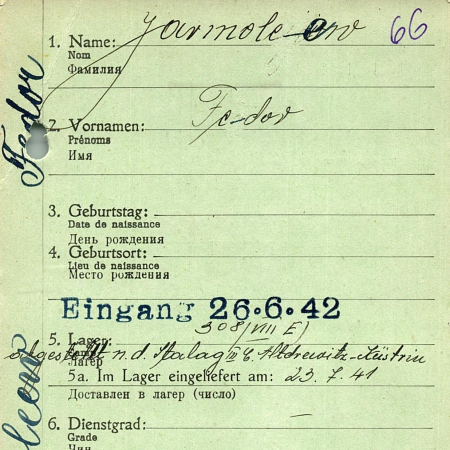 66
1. Name:
Nom
Фамилия
Fedor
2. Vornamen: Fedor
Prénoms
Имя
3. Geburtstag:
Date de naissance
День рождения
4. Geburtsort:
Lieu de naissance
Место рождения
Eingang 26.6.42
308/VIII E/
5. Lager:
n. d. Stalag III C,
Лагер
5a. Im Lager eingeliefert am: 23.7.41
Доставлен в лагер (число)
6. Dienstgrad:
Grade
Чин